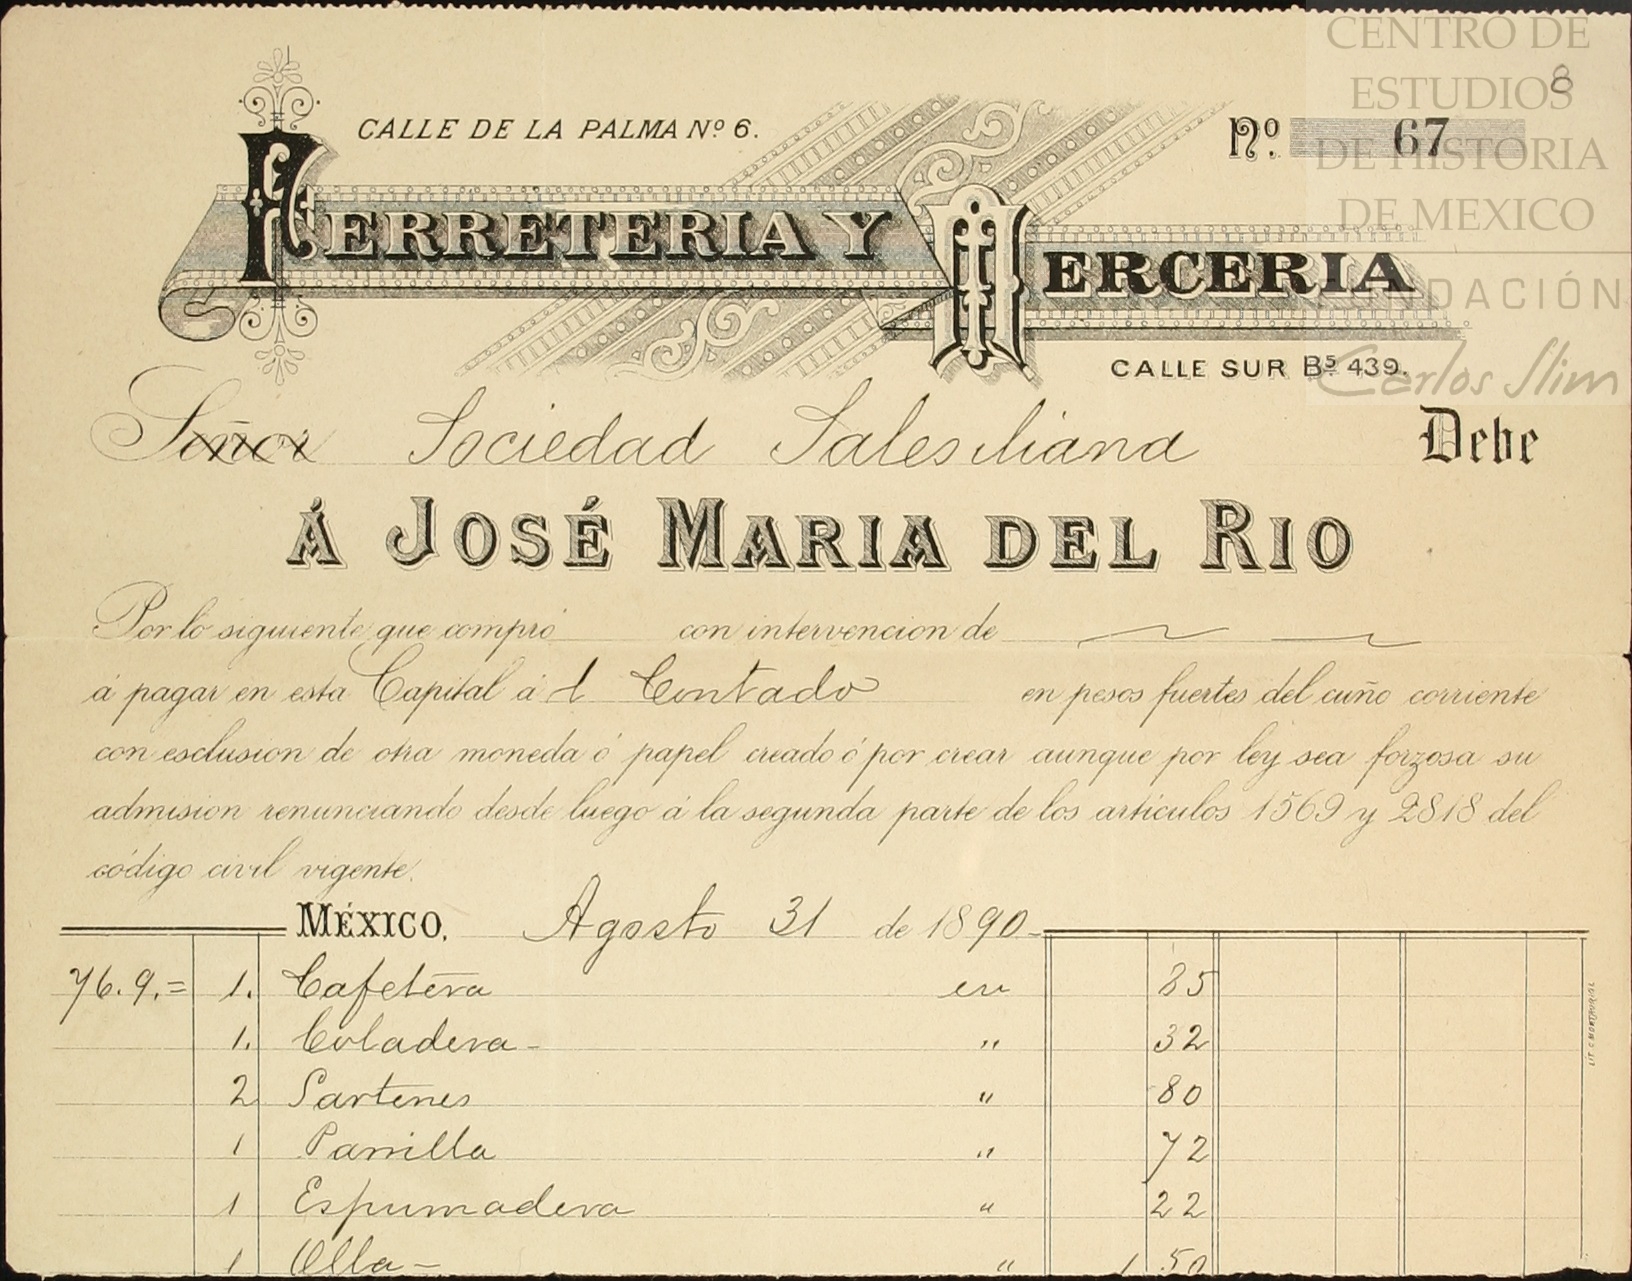 CENTRO DE
ESTUDIOS
DE HISTORIA
DE MEXICO
FUNDACIÓN
Carlos Slim
8
CALLE DE LA PALMA Nº 6.
Nº. 67
FERRETERIA Y MERCERIA
CALLE SUR B5 439.
Señor Sociedad Salesiliana Debe
Á JOSÉ MARIA DEL RIO
Por lo siguiente que compró con intervencion de
á pagar en esta Capital á l Contado en pesos fuertes del cuño corriente
con esclusion de otra moneda ó papel creado ó por crear aunque por ley sea forzosa su
admision renunciando desde luego á la segunda parte de los artículos 1569 y 2818 del
código civil vigente.
MÉXICO, Agosto 31 de 1890
76.9.= 1. Cafetera en 85
1. Coladera - " 32
2 Sartenes " 80
1 Parrilla " 72
1 Espumadera " 22
1 Olla - " 1 50
LIT. C. MONTAURIOL